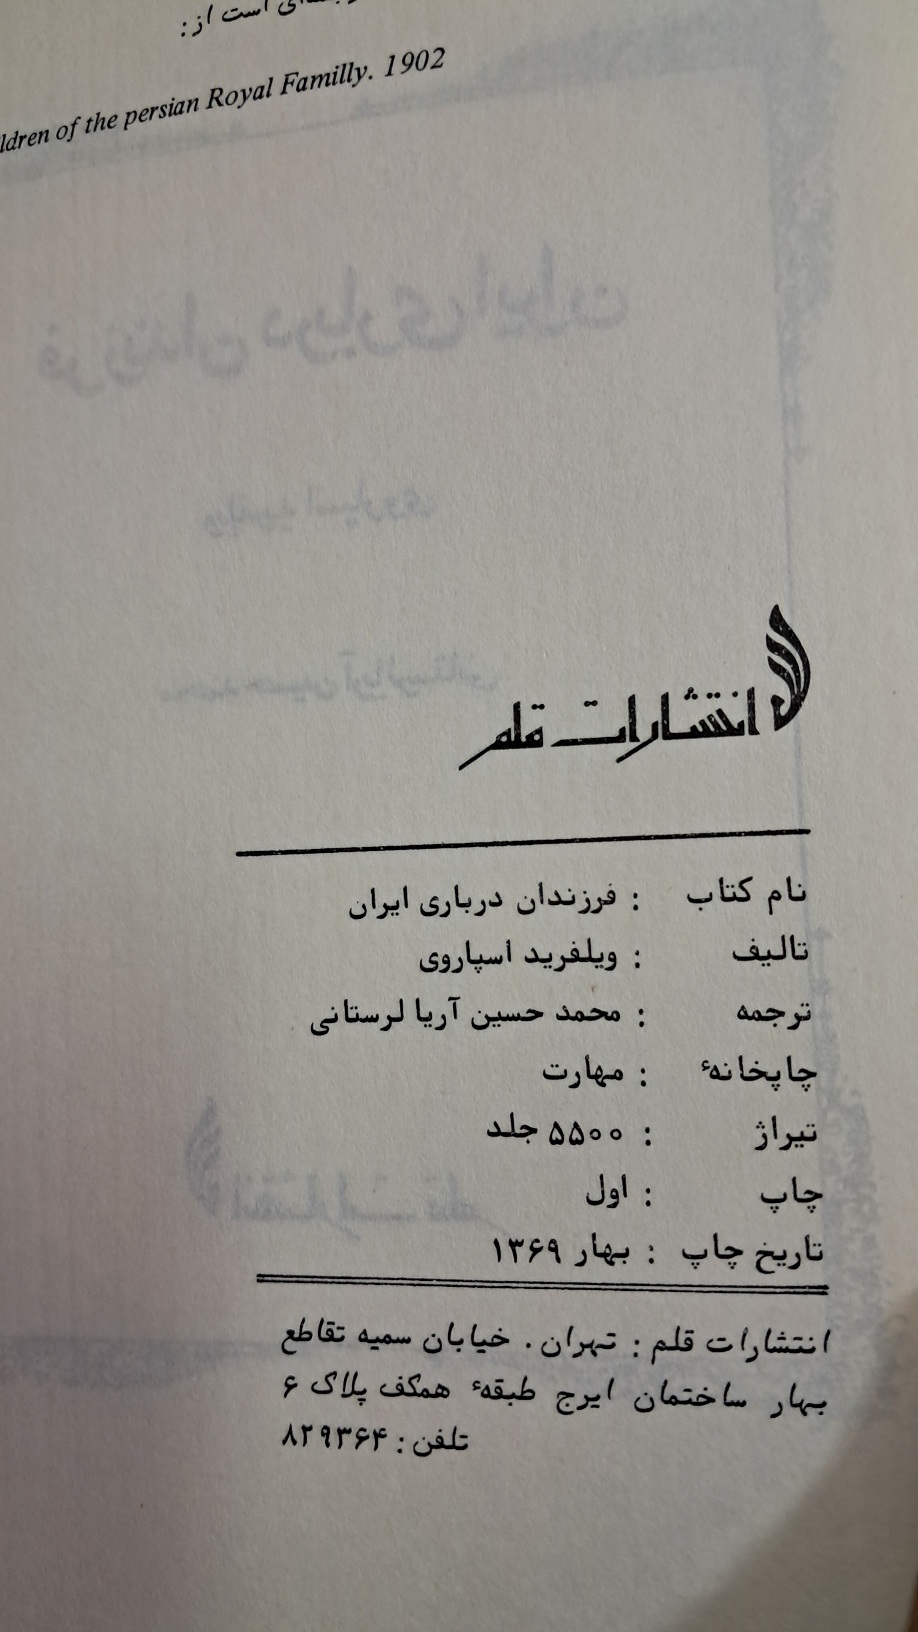 است از:
of the persian Royal Familly. 1902
انتشارات قلم
نام کتاب : فرزندان درباری ایران
تالیف : ویلفرید اسپاروی
ترجمه : محمد حسین آریا لرستانی
چاپخانهٔ : مهارت
تیراژ : ۵۵۰۰ جلد
چاپ : اول
تاریخ چاپ : بهار ۱۳۶۹
انتشارات قلم : تهران . خیابان سمیه تقاطع
بهار ساختمان ایرج طبقهٔ همکف پلاک ۶
تلفن : ۸۲۹۳۶۴